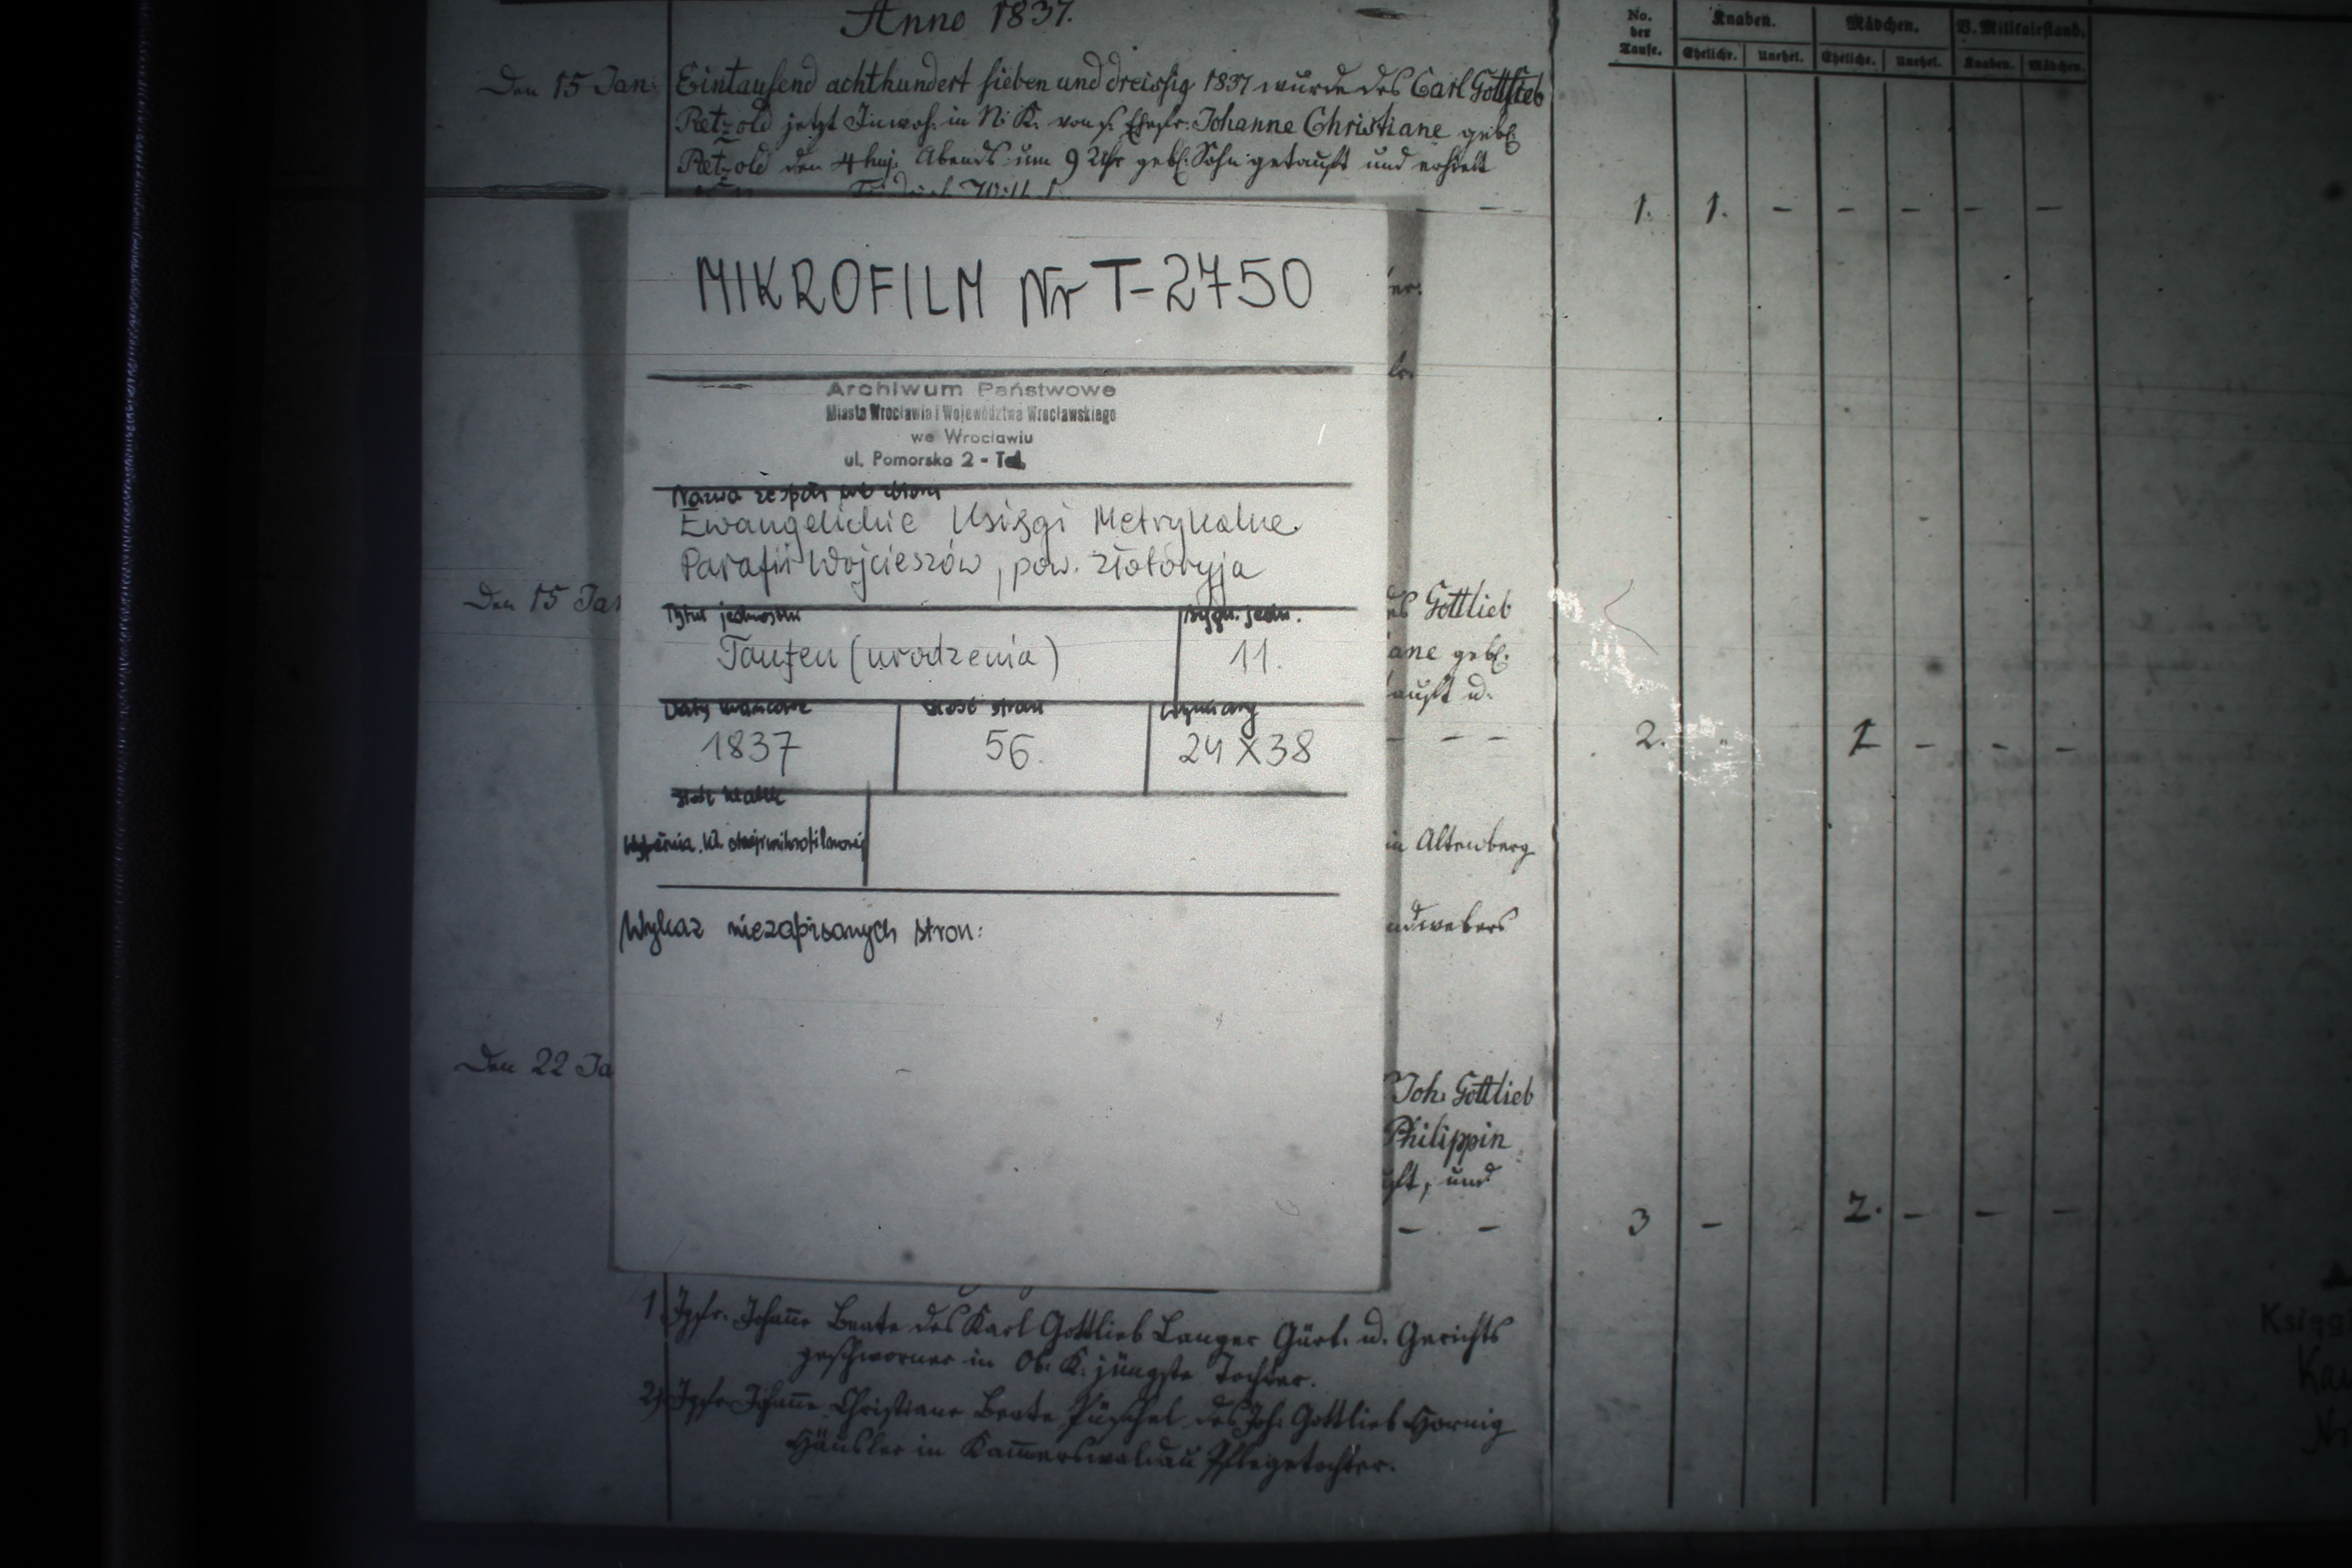 Anno 1837.
Den 15 Jan: Eintausend achthundert sieben und dreissig 1837 wurde des Carl Gottlieb
Petzold jetzt Inwoh. in N. K. von s. Ehefr. Johanne Christiane geb.
Petzold den 4 huj. Abends um 9 Uhr geb. Sohn getauft und erhielt
No. der Taufe.
Knaben. Mädchen. V. Militairstand.
Eheliche. Unehel. Eheliche. Unehel. Knaben. Mädchen.
1. 1. – – – – –
MIKROFILM Nr T-2750
Archiwum Państwowe
Miasta Wrocławia i Województwa Wrocławskiego
we Wrocławiu
ul. Pomorska 2 - Tel.
Nazwa zespołu lub zbioru
Ewangelickie Księgi Metrykalne
Parafii Wojcieszów, pow. Złotoryja
Tytuł jednostki
Sygn. jedn.
Taufen (urodzenia)
11.
Daty krańcowe
Ilość stron
Wymiary
1837
56.
24 X 38
Ilość klatek
Wykaz niezapisanych stron:
Den 15 Jan
des Gottlieb
ane geb.
auft u.
2. 1 – – –
in Altenberg
Den 22 Ja
Joh. Gottlieb
Philippin
und
3 – 2. – – –
1 Jgfr. Johanne Beate des Karl Gottlieb Langer Gärt. u. Gerichts
geschworner in Ob. K. jüngste Tochter.
2) Jgfr Johanne Christiane Beate Püschel des Joh. Gottlieb Hornig
Häusler in Kammerswaldau Pflegetochter.